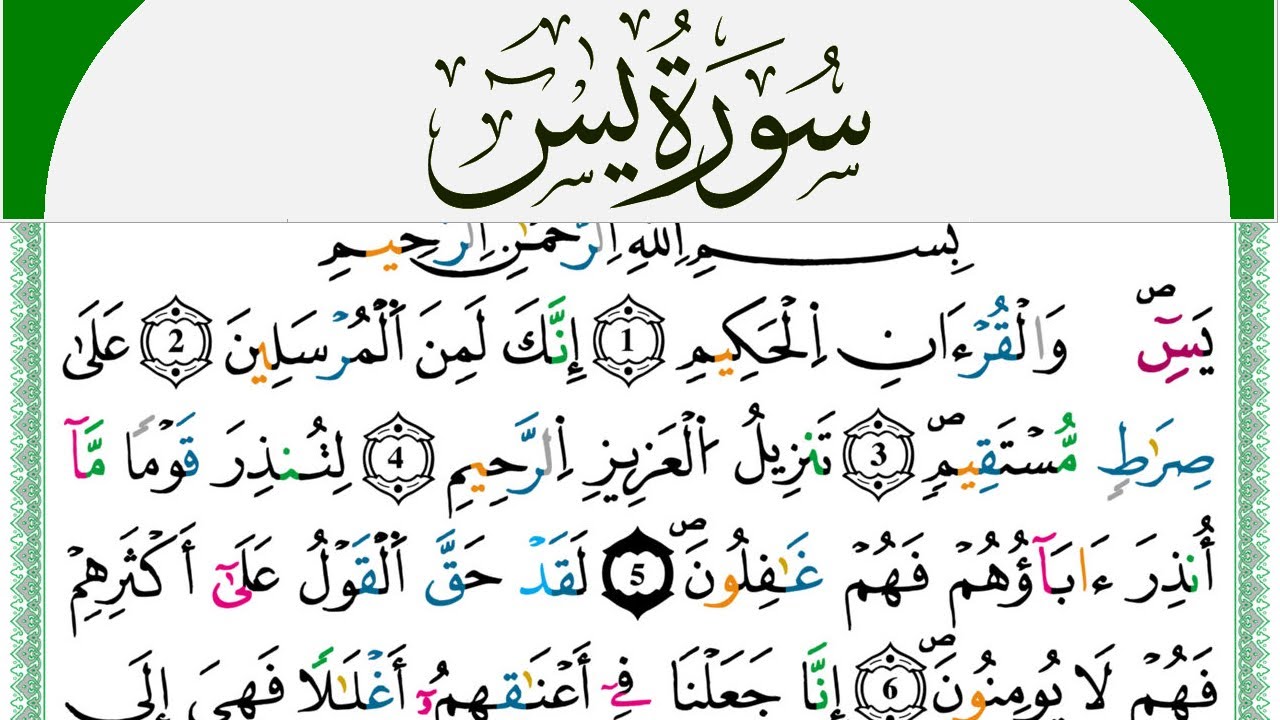 سُورَةُ يسٓ
بِسْمِ اِللَّهِ اِلرَّحْمَٰنِ اِلرَّحِيمِ
يَسِٓۖ وَالْقُرْءَانِ اِلْحَكِيمِ 1 إِنَّكَ لَمِنَ اَلْمُرْسَلِينَ 2 عَلَىٰ
صِرَٰطٍ مُّسْتَقِيمٍۖ 3 تَنزِيلُ اَلْعَزِيزِ اِلرَّحِيمِ 4 لِتُنذِرَ قَوْماً مَّآ
أُنذِرَ ءَابَآؤُهُمْ فَهُمْ غَٰفِلُونَۖ 5 لَقَدْ حَقَّ اَلْقَوْلُ عَلَىٰٓ أَكْثَرِهِمْ
فَهُمْ لَا يُومِنُونَۖ 6 إِنَّا جَعَلْنَا فِےٓ أَعْنَٰقِهِمُۥٓ أَغْلَٰلاً فَهِىَ إِلَى